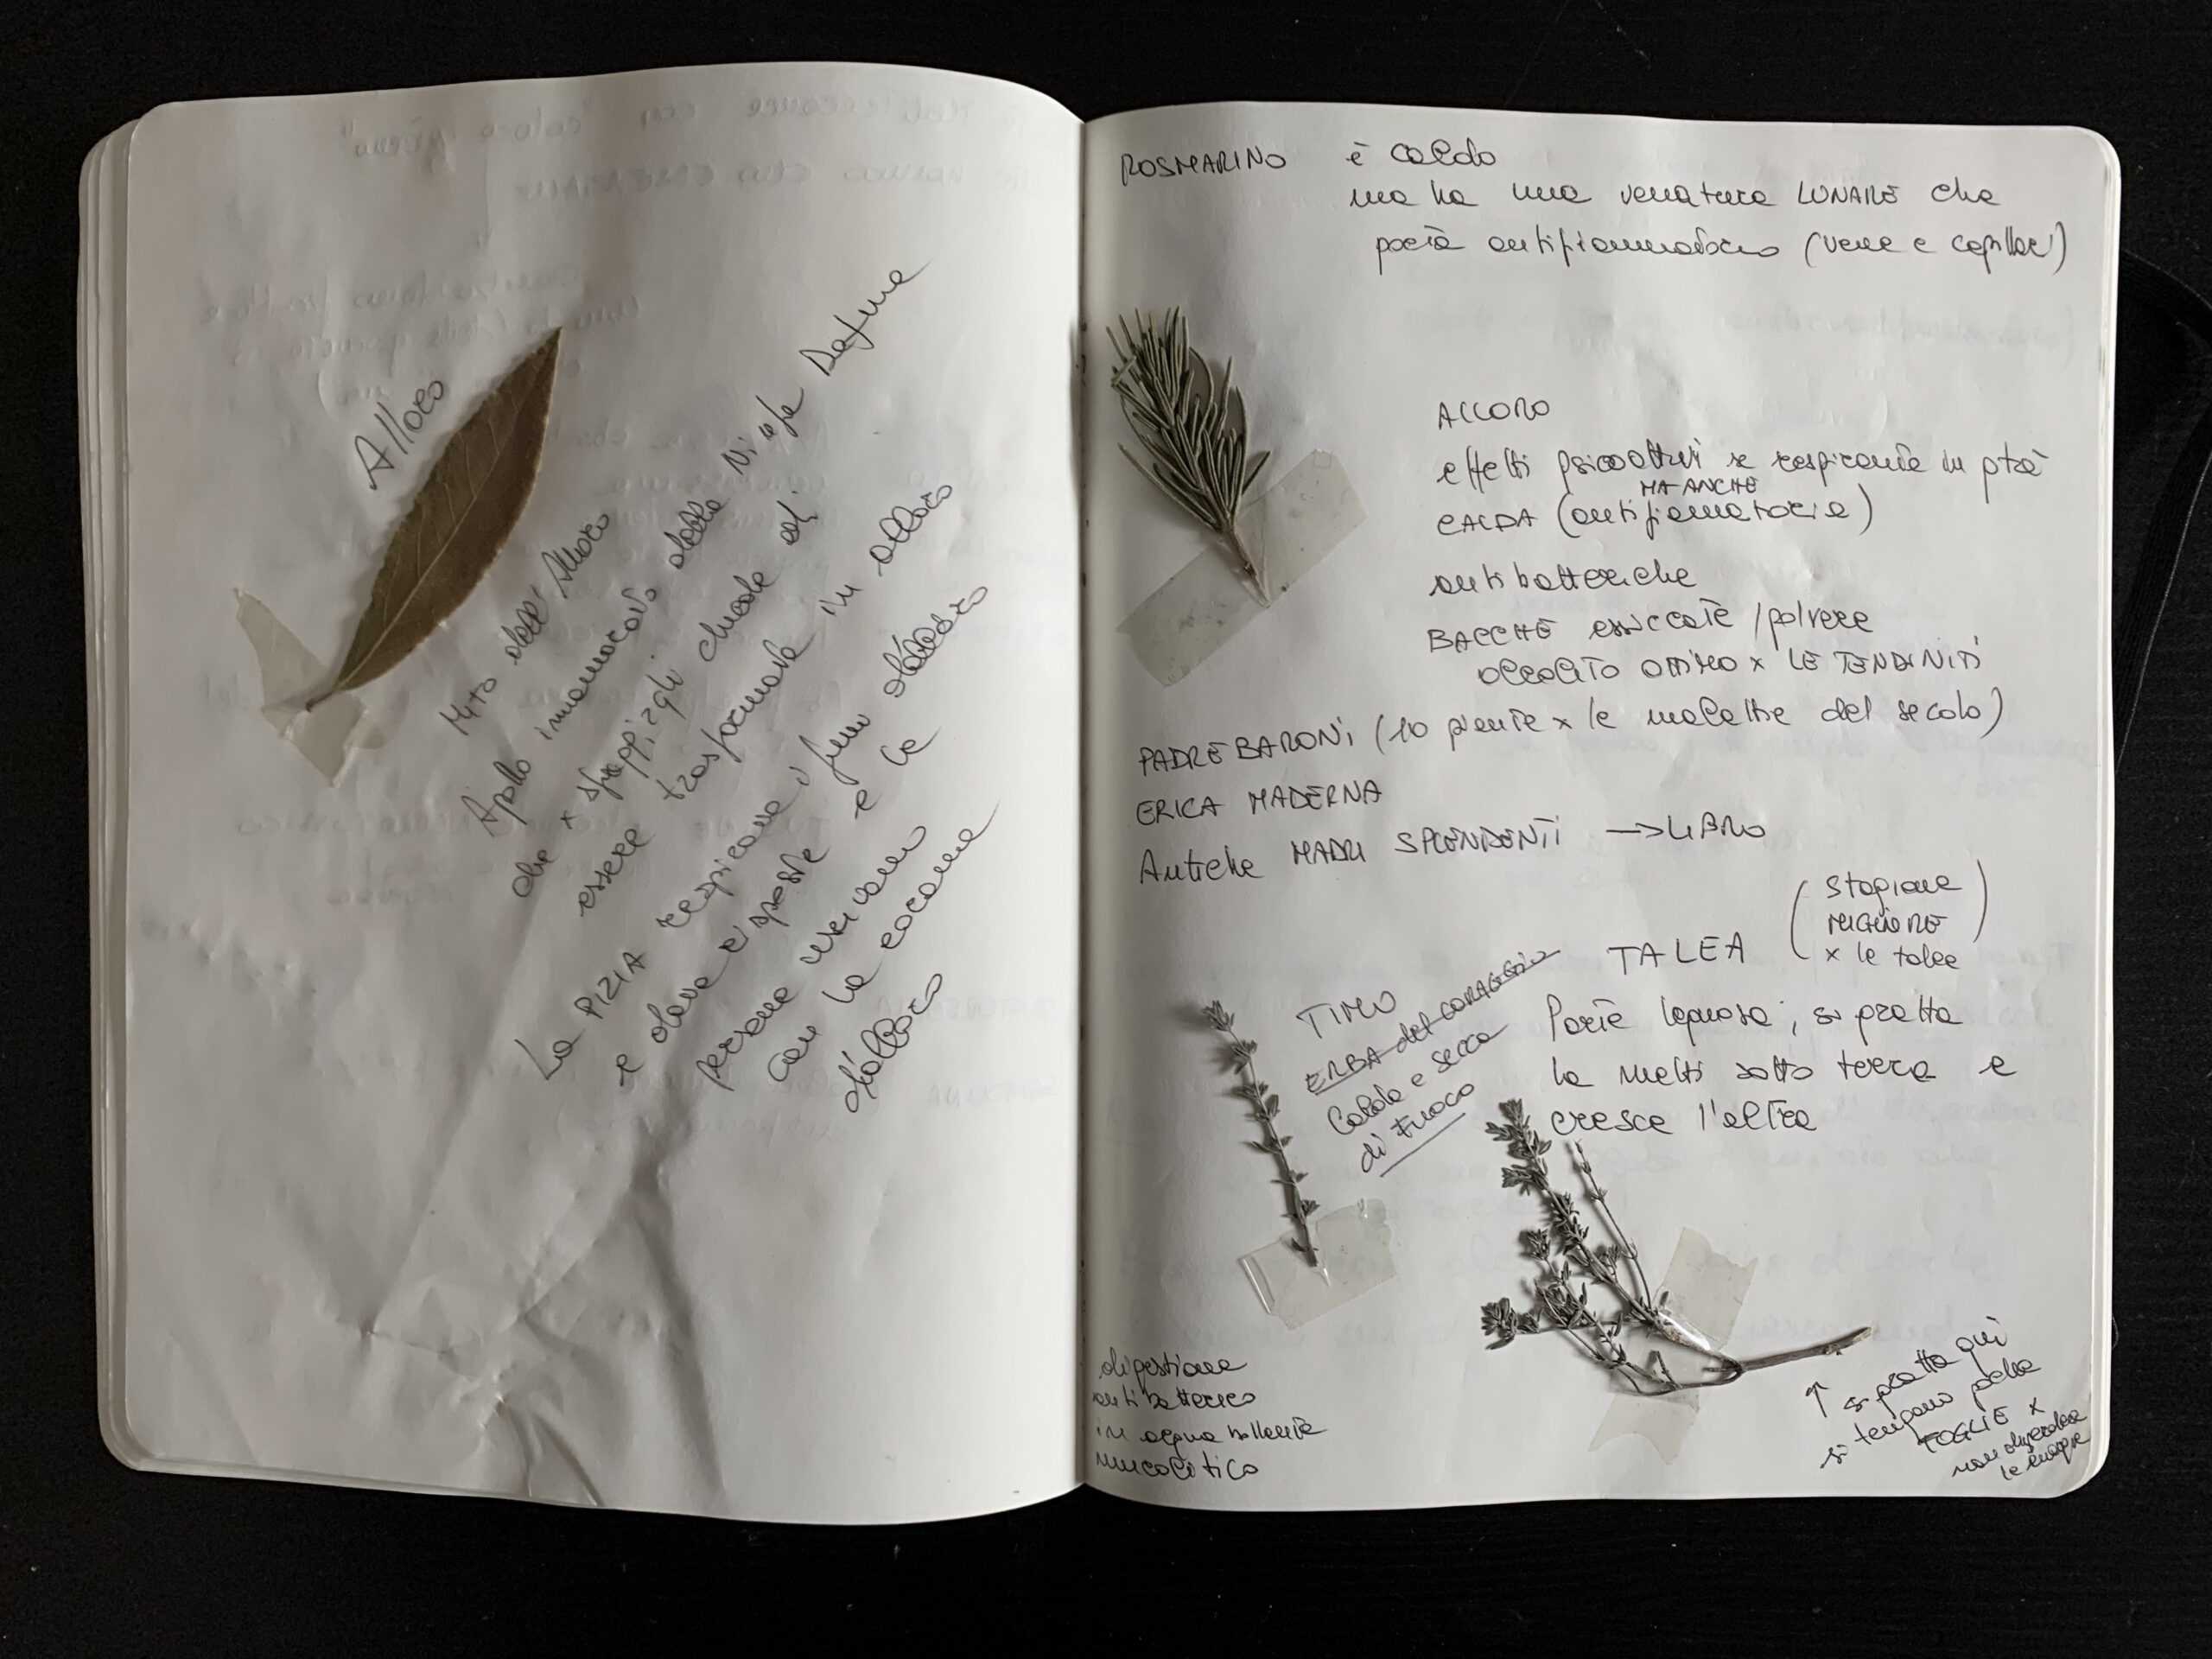 Alloro
Mito dell'Alloro
Apollo innamorato della Ninfa Dafne
che x sfuggirgli chiede di
essere trasformata in alloro
La PIZIA respirava i fumi d'alloro
e dava risposte e le
persone uscivano
con la corona
d'alloro
ROSMARINO è caldo
ma ha una venatura LUNARE che
porta antifiammatorio (vene e capillari)
ALLORO
effetti psicoattivi se respirante in
MA ANCHE
CALDA (antifiammatorie)
antibatteriche
BACCHE essiccate / polvere
oleolito OTTIMO x LE TENDINITI
PADRE BARONI (10 piante x le malattie del secolo)
ERICA MADERNA
Antiche MADRI SPLENDENTI → LIBRO
TALEA (stagione
MIGLIORE
x le talee)
Parte legnosa; si gratta
la metti sotto terra e
cresce l'altra
TIMO
ERBA del CORAGGIO
Calda e secca
di FUOCO
digestione
antibatterico
in acqua bollente
mucolitico
↑ si gratta qui
si tengono poche
FOGLIE x
non disperdere
le energie